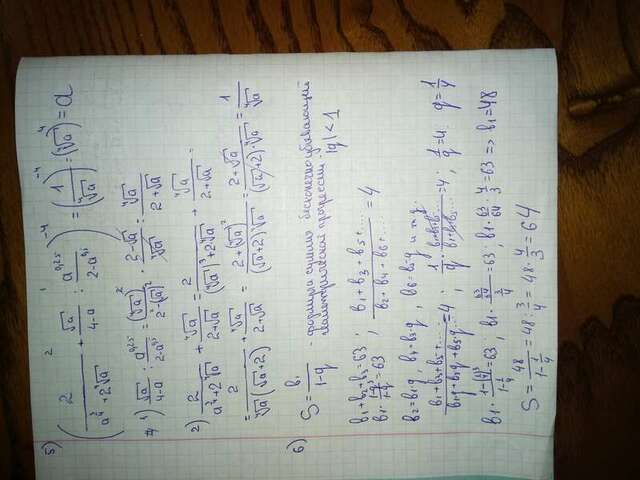 5) (2/(a^(3/4)+2⁴√a) + √a/(4-a) : a^0,25/(2-a^0,5))^-4 = (1/⁴√a)^-4 = (⁴√a)^4 = a
1) √a/(4-a) : a^0,25/(2-a^0,5) = (⁴√a)^2/(2^2-(√a)^2) · (2-√a)/⁴√a = ⁴√a/(2+√a)
2) 2/(a^(3/4)+2⁴√a) + ⁴√a/(2+√a) = 2/((⁴√a)^3+2·⁴√a) + ⁴√a/(2+√a) =
= 2/(⁴√a(√a+2)) + ⁴√a/(2+√a) = (2+(⁴√a)^2)/((√a+2)⁴√a) = (2+√a)/((√a+2)·⁴√a) = 1/⁴√a
6) S = b₁/(1-q) - формула суммы бесконечно убывающей
геометрической прогрессии. |q| < 1
b₁+b₂+b₃=63 ; (b₁+b₃+b₅+...)/(b₂+b₄+b₆+...) = 4
b₁·(1-q³)/(1-q)=63
b₂=b₁·q, b₄=b₃·q, b₆=b₅·q и т.д.
(b₁+b₃+b₅+...)/(b₁q+b₃q+b₅q...)=4 ; 1/q · (b₁+b₃+b₅...)/(b₁+b₃+b₅...)=4 ; 1/q=4 q=1/4
b₁·(1-(1/4)³)/(1-1/4)=63 ; b₁·(63/64)/(3/4)=63 ; b₁·63/64·4/3=63 => b₁=48
S = 48/(1-1/4) = 48:3/4 = 48·4/3 = 64